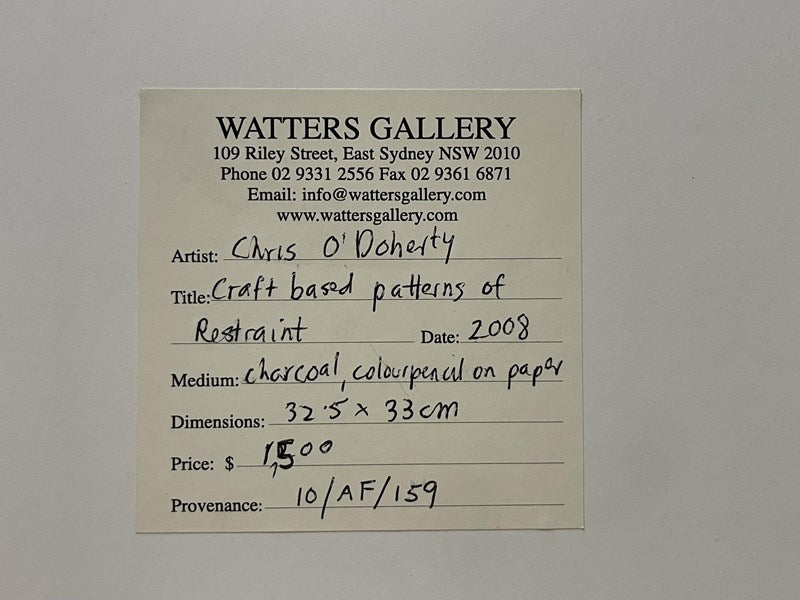 WATTERS GALLERY
109 Riley Street, East Sydney NSW 2010
Phone 02 9331 2556 Fax 02 9361 6871
Email: info@wattersgallery.com
www.wattersgallery.com
Artist: Chris O'Doherty
Title: Craft based patterns of
Restraint Date: 2008
Medium: charcoal, colourpencil on paper
Dimensions: 32.5 x 33cm
Price: $ 1,500
Provenance: 10/AF/159